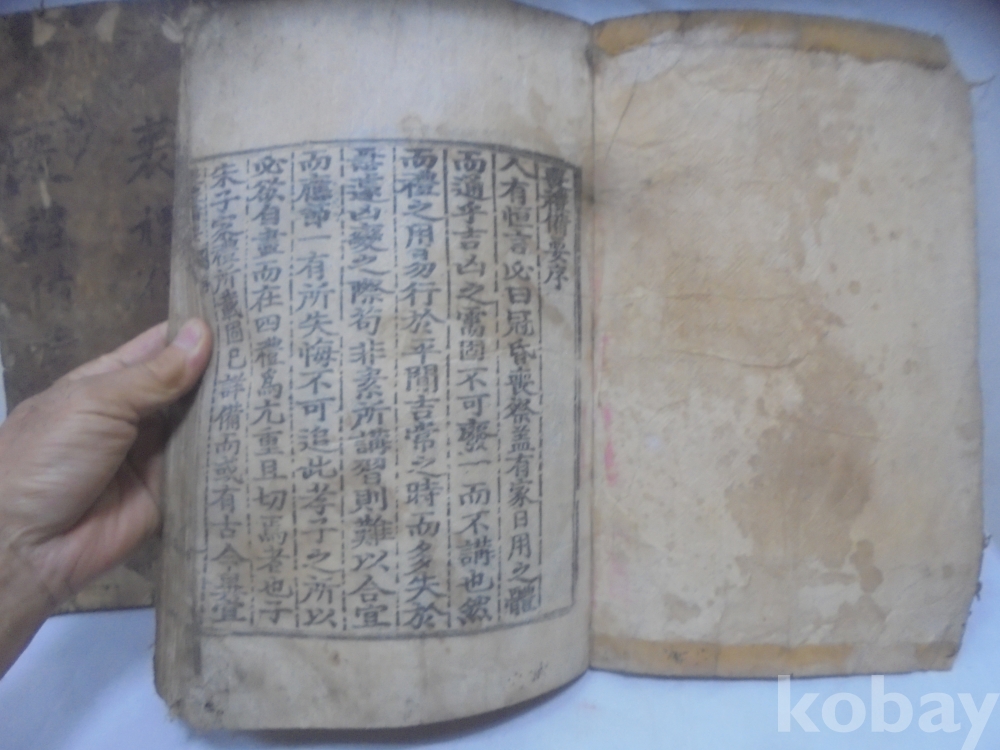 喪禮備要序
人有恒言必曰冠昏喪祭蓋有家日用之體
而通乎吉凶之需固不可廢一而不講也然
而禮之用易行於平閒吉常之時而多失於
蒼遑凶變之際苟非素所講習則難以合宜
而應節一有所失悔不可追此孝子之所以
必欲自盡而在四禮爲尤重且切焉者也子
朱子家禮所載固已詳備而或有古今異宜
喪禮備
kobay